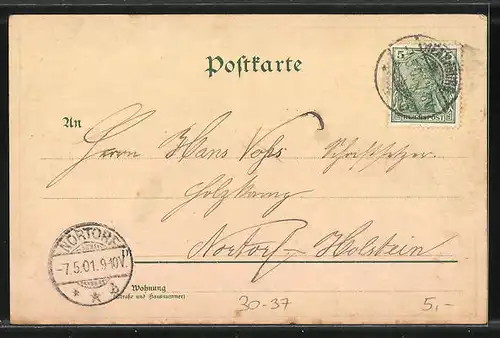 Postkarte
5
REICHSPOST
An
Herrn Hans Voss
Nortorf - Holstein
NORTORF
-7.5.01.9-10V.
* * b
Wohnung
(Straße und Hausnummer)
30-37
5,-